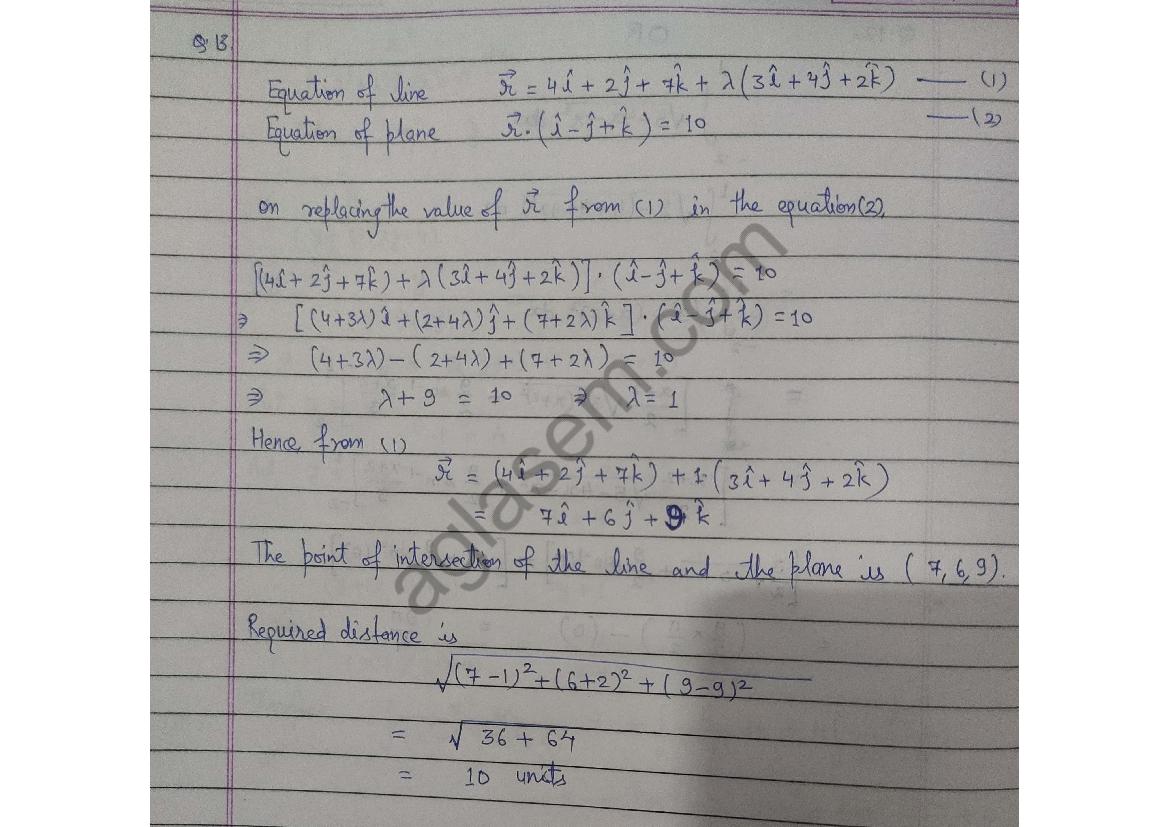 Q·13
Equation of line r⃗ = 4î + 2ĵ + 7k̂ + λ(3î + 4ĵ + 2k̂) —— (1)
Equation of plane r⃗·(î - ĵ + k̂) = 10 —— (2)
on replacing the value of r⃗ from (1) in the equation (2),
[(4î + 2ĵ + 7k̂) + λ(3î + 4ĵ + 2k̂)]·(î - ĵ + k̂) = 10
⇒ [(4+3λ)î + (2+4λ)ĵ + (7+2λ)k̂]·(î - ĵ + k̂) = 10
⇒ (4+3λ) - (2+4λ) + (7+2λ) = 10
⇒ λ + 9 = 10 ⇒ λ = 1
Hence from (1)
r⃗ = (4î + 2ĵ + 7k̂) + 1·(3î + 4ĵ + 2k̂)
= 7î + 6ĵ + 9k̂
The point of intersection of the line and the plane is (7,6,9).
Required distance is
√(7-1)² + (6+2)² + (9-9)²
= √36 + 64
= 10 units
aglasem.com